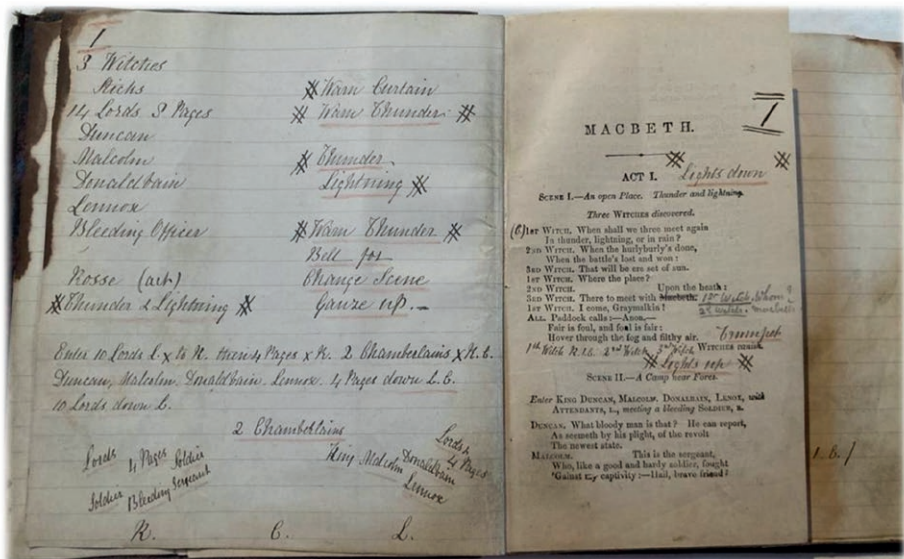 1
3 Witches
14 Lords 8 Pages
Duncan
Malcolm
Donaldbain
Lennox
Bleeding Officer
Rosse (arb)
Thunder & Lightning
Warn Curtain
Warn Thunder
Thunder
Lightning
Warn Thunder
Bell for
Change Scene
Gauze up.—
Enter 10 Lords L. x to R. then 4 Pages x R. 2 Chamberlains x R.C.
Duncan, Malcolm. Donaldbain. Lennox. 4 Pages down L.C.
10 Lords down L.
2 Chamberlains
Lords 4 Pages Soldier
Soldier Bleeding Sergeant
King Malcolm Donaldbain
Lennox
Lords &
4 Pages
R. C. L.
1
MACBETH.
ACT I. Lights down
SCENE I.—An open Place. Thunder and lightning.
Three WITCHES discovered.
(C) 1ST WITCH. When shall we three meet again
In thunder, lightning, or in rain?
2ND WITCH. When the hurlyburly's done,
When the battle's lost and won:
3RD WITCH. That will be ere set of sun.
1ST WITCH. Where the place?
2ND WITCH. Upon the heath:
3RD WITCH. There to meet with Macbeth. 1st Witch. Whom?
1ST WITCH. I come, Graymalkin! 2d Witch. Macbeth
ALL. Paddock calls:—Anon.—
Fair is foul, and foul is fair:
Hover through the fog and filthy air. Trumpet
1st Witch R.U.E. 2nd Witch 3rd Witch WITCHES vanish
Lights up
SCENE II.—A Camp near Fores.
Enter KING DUNCAN, MALCOLM, DONALBAIN, LENOX, with
ATTENDANTS, L., meeting a bleeding SOLDIER, R.
DUNCAN. What bloody man is that? He can report,
As seemeth by his plight, of the revolt
The newest state.
MALCOLM. This is the sergeant,
Who, like a good and hardy soldier, fought
'Gainst my captivity:—Hail, brave friend!